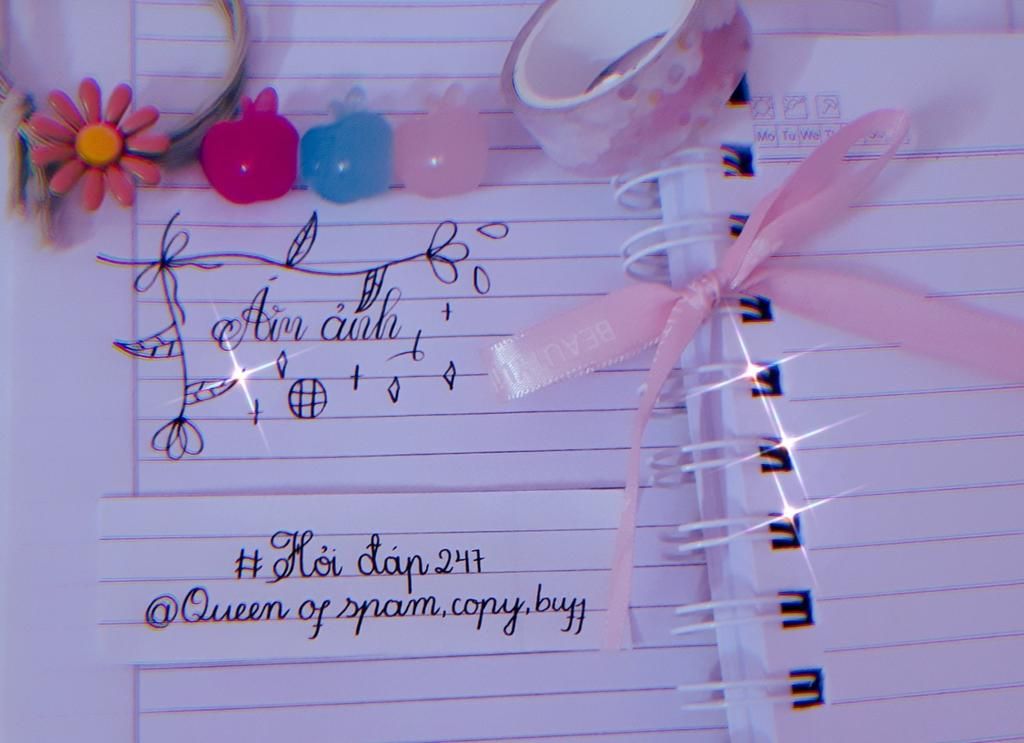 Mo Tu We Th
Ẩn ảnh
BEAU
#Hỏi đáp 247
@Queen of spam, copy, buff